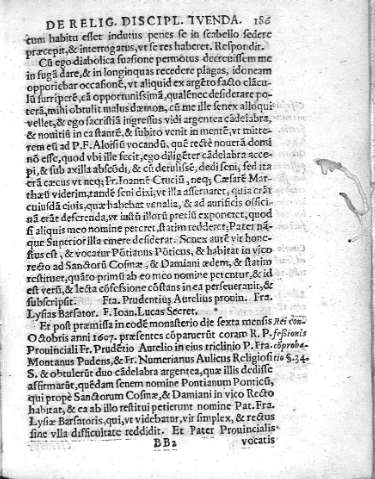 DE RELIG. DISCIPL. TVENDA. 186
cum habitu esset indutus penes se in scabello sedere
præcepit, & interrogatus, vt se res haberet. Respondit.
Cũ ego diabolica suasione permotus decreuissem me
in fugã dare, & in longinquas recedere plagas, idoneam
opperiebar occasionẽ, vt aliquid ex argẽto facto clãcu-
lũ surriperẽ, eã opportunissimã, qualẽ nec desiderare po-
terã, mihi obtulit malus dæmon, cũ me ille senex alloqui
vellet, & ego sacristiã ingressus vidi argentea cãdelabra,
& nouitiũ in ea stantẽ, & subito venit in mentẽ, vt mitte-
rem eũ ad P. F. Aloisiũ vocandũ, quẽ rectè nouerã domi
nõ esse, quod vbi ille fecit, ego diligẽter cãdelabra acce-
pi, & sub axilla abscõdi, & cũ detulissẽ, dedi seni, sed ita
erã cæcus vt neq; Fr. Ioannẽ Cruciũ, neq; Cæsarẽ Mat-
thæũ viderim, tandẽ seni dixi, vt illa asseruaret, quia erãt
cuiusdã ciuis, quæ habebat venalia, & ad aurificis offici-
nã erãt deferenda, vt iustũ illorũ preciũ exponeret, quod
si aliquis meo nomine peteret, statim redderet, Pater nã-
que Superior illa emere desiderat. Senex autẽ vir hone-
stus est, & vocatur Põtianus Põticus, & habitat in vico
recto ad Sanctorũ Cosmæ, & Damiani ædem, & statim
restituet, quãro primũ ab eo meo nomine petentur, & id
est verũ, & lecta cõfessione cõstans in ea perseuerauit, &
subscripsit. Fra. Prudentius Aurelius prouin. Fra.
Lysias Barsator. F. Ioan. Lucas Secret.
Et post præmissa in eodẽ monasterio die sexta mensis Rei con-
Octobris anni 1607. præsentes cõparuerũt coram R. P. fessionis
Prouinciali Fr. Prudẽtio Aurelio in eius triclinio P. Fra. cõproba-
Montanus Pudens, & Fr. Numerianus Aulicus Religiosi tio §. 34.
S. & obtulerũt duo cãdelabra argentea, quæ illis dedisse
affirmarũt, quẽdam senem nomine Pontianum Ponticũ,
qui propè Sanctorum Cosmæ, & Damiani in vico Recto
habitat, & ea ab illo restitui petierunt nomine Pat. Fra.
Lysiæ Barsatoris, qui, vt videbatur, vir simplex, & rectus
sine vlla difficultate reddidit. Et Pater Prouincialis
BB2 vocatis